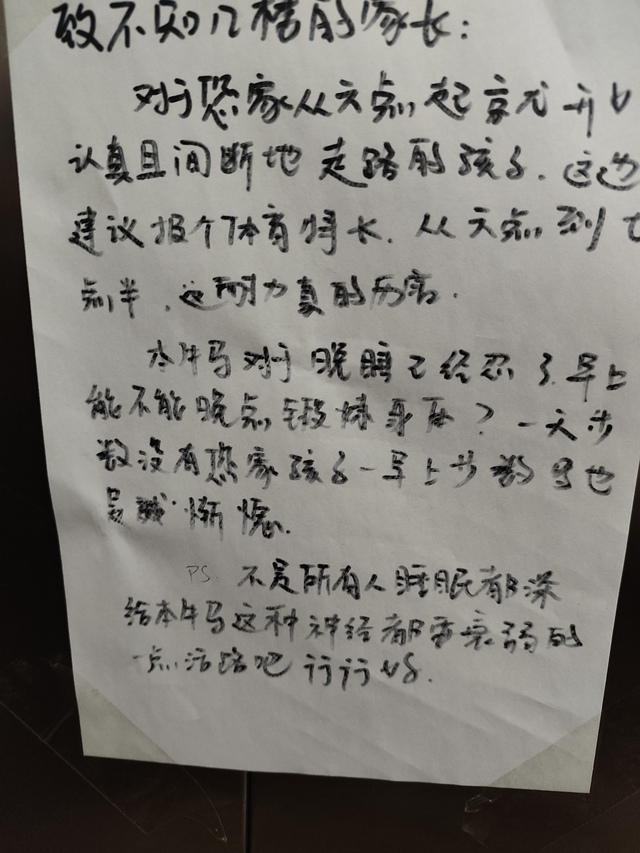 致不知几楼的家长:
对于您家从六点起床就开始
认真且间断地走路的孩子. 这边
建议报个体育特长. 从六点到七
点半, 这耐力真的厉害.
本牛马对于晚睡已经忍了. 早上
能不能晚点锻炼身体? 一天步
数没有您家孩子一早上步数多也
是 惭愧.
PS. 不是所有人睡眠都深
给本牛马这种神经都要衰弱的
一点活路吧 行行